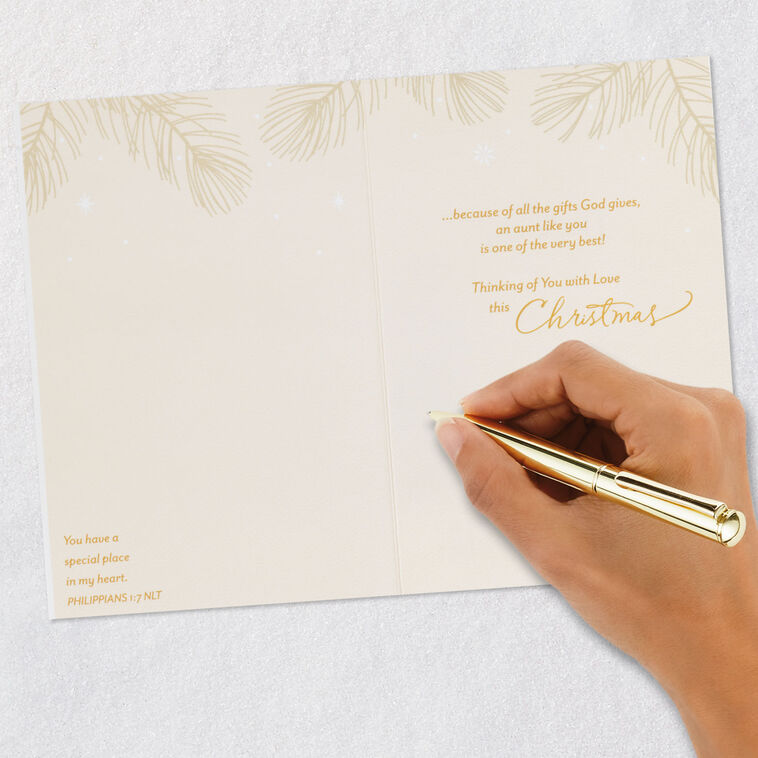 You have a
special place
in my heart.
PHILIPPIANS 1:7 NLT
...because of all the gifts God gives,
an aunt like you
is one of the very best!
Thinking of You with Love
this Christmas